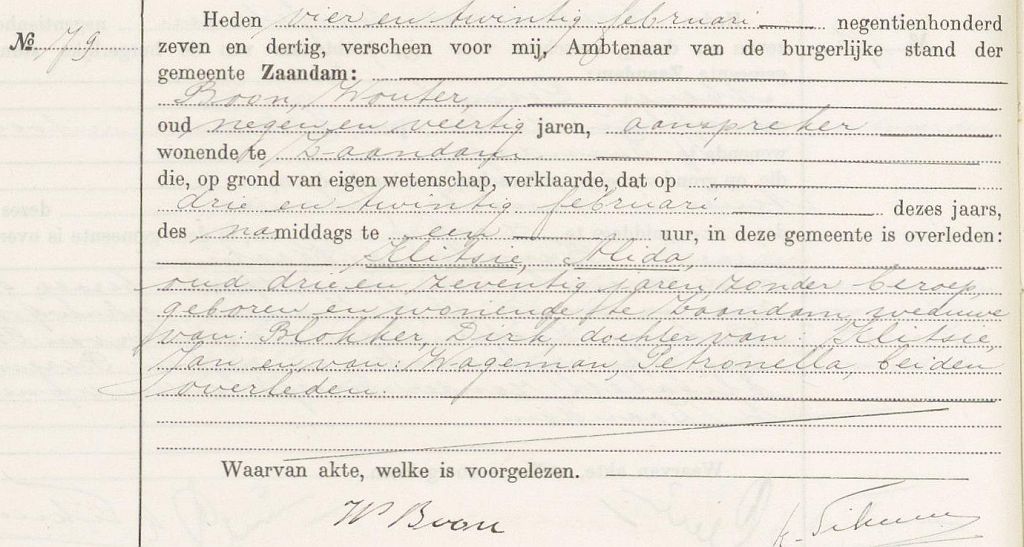 Heden vier en twintig februari negentienhonderd
№. 79
zeven en dertig, verscheen voor mij, Ambtenaar van de burgerlijke stand der
gemeente Zaandam:
Boon, Wouter,
oud negen en veertig jaren, aanspreker
wonende te Zaandam
die, op grond van eigen wetenschap, verklaarde, dat op
drie en twintig februari dezes jaars,
des namiddags te een uur, in deze gemeente is overleden:
Klitsie, Alida,
oud drie en zeventig jaren, zonder beroep,
geboren en wonende te Zaandam, weduwe
van Blokker, Dirk, dochter van Klitsie,
Jan en van Wageman, Petronella, beiden
overleden.
Waarvan akte, welke is voorgelezen.
W Boon